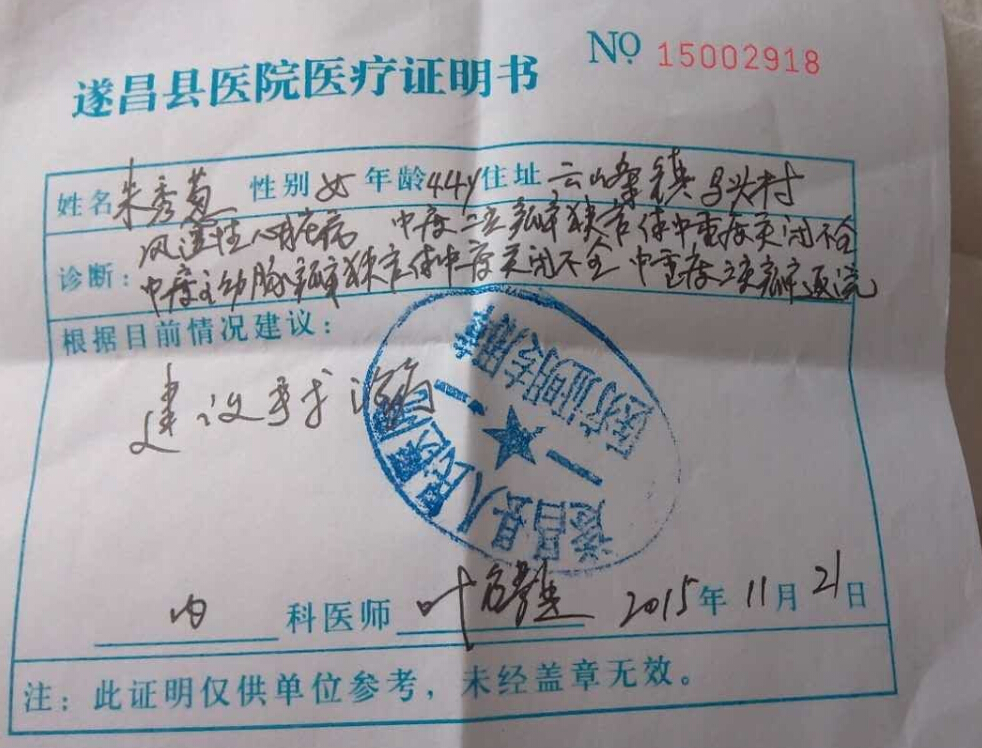 遂昌县医院医疗证明书
№ 15002918
姓名 朱秀 性别 女 年龄 44y 住址 云峰镇 村
诊断: 风湿性心脏病 中度二尖瓣狭窄伴中重度关闭不全
中度主动脉瓣狭窄伴中度关闭不全 中重度三尖瓣返流
根据目前情况建议:
建议手术治疗
遂昌县人民医院
医疗证明专用章
内 科医师 叶 2015年 11月 21日
注:此证明仅供单位参考,未经盖章无效。